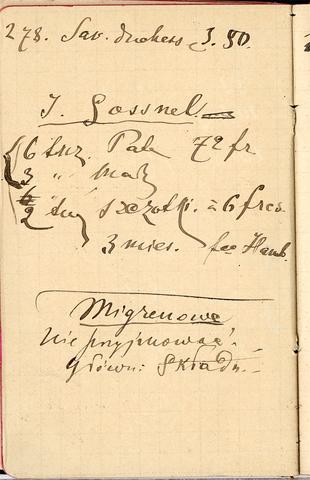 278. Sav. duchess 3.50.
J. Gossnel
6 tuz. Pate 72 fr
3 " 
2 duż szczotki. à 6 frcs
3 mies. fco Hamb.
Migrenowe
nie przyjmować.
główn: Składu.